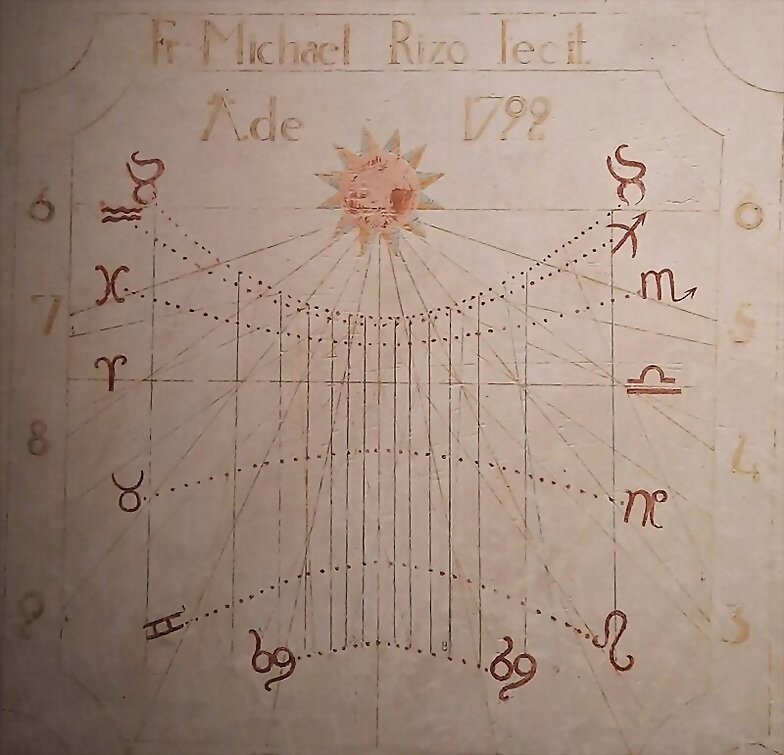 Fr Michael Rizo Fecit
A.de
6 6
7 5
8 4
9 3